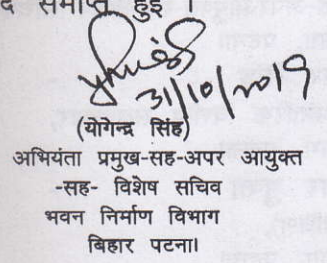 समाप्त हुई
31/10/2019
(योगेन्द्र सिंह)
अभियंता प्रमुख-सह-अपर आयुक्त
-सह- विशेष सचिव
भवन निर्माण विभाग
बिहार पटना।